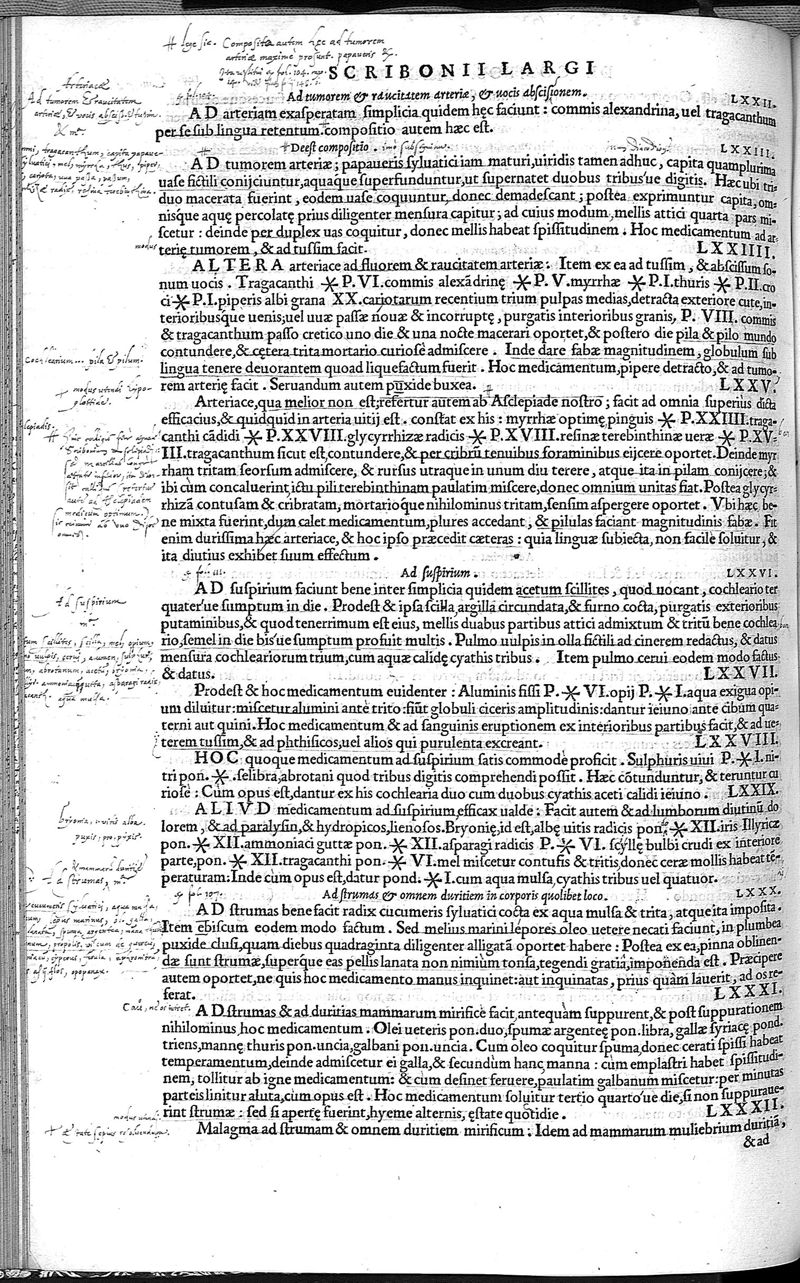 # lege sic. Compositæ autem hæc ad tumorem
arteriæ maxime prosunt. papaveris &c.
SCRIBONII LARGI
Ad tumorem & raucitatem arteriæ, & vocis abscissionem. LXXII.
Arteriacæ
Ad tumorem & raucitatem
arteriæ, & vocis abscissionem.
AD arteriam exasperatam simplicia quidem hęc faciunt: commis alexandrina, uel tragacanthum
per se sub lingua retentum. compositio autem hæc est.
Deest compositio. LXXIII.
AD tumorem arteriæ; papaueris syluatici iam maturi, uiridis tamen adhuc, capita quamplurima
uase fictili conijciuntur, aquaque superfunduntur, ut supernatet duobus tribus'ue digitis. Hæc ubi tri-
duo macerata fuerint, eodem uase coquuntur, donec demadescant; postea exprimuntur capita, om-
nisque aquę percolatę prius diligenter mensura capitur; ad cuius modum, mellis attici quarta pars mi-
scetur: deinde per duplex uas coquitur, donec mellis habeat spissitudinem. Hoc medicamentum ad ar-
modus
terię tumorem, & ad tussim facit. LXXIIII.
ALTERA arteriace ad fluorem & raucitatem arteriæ: Item ex ea ad tussim, & abscissum so-
num uocis. Tragacanthi ⁎ P. VI. commis alexādrinę ⁎ P. V. myrrhæ ⁎ P. I. thuris ⁎ P. II. cro
ci ⁎ P. I. piperis albi grana XX. cariotarum recentium trium pulpas medias, detracta exteriore cute, in-
terioribusque uenis; uel uuæ passæ nouæ & incorruptę, purgatis interioribus granis, P. VIII. commis
& tragacanthum passo cretico uno die & una nocte macerari oportet, & postero die pila & pilo mundo
contundere, & cętera trita mortario curiose admiscere. Inde dare fabæ magnitudinem, globulum sub
lingua tenere deuorantem quoad liquefactum fuerit. Hoc medicamentum, pipere detracto, & ad tumo-
rem arterię facit. Seruandum autem puxide buxea. LXXV.
pila & pilum.
modus utendi
Arteriace, qua melior non est; refertur autem ab Asclepiade nostro; facit ad omnia superius dicta
efficacius, & quidquid in arteria uitij est. constat ex his: myrrhæ optimę pinguis ⁎ P. XXIIII. traga-
canthi cādidi ⁎ P. XXVIII. glycyrrhizæ radicis ⁎ P. XVIII. resinæ terebinthinæ ueræ ⁎ P. XV-
III. tragacanthum sicut est, contundere, & per cribrū tenuibus foraminibus eijcere oportet. Deinde myr
rham tritam seorsum admiscere, & rursus utraque in unum diu terere, atque ita in pilam conijcere; &
ibi cum concaluerint, ictu pili terebinthinam paulatim miscere, donec omnium unitas fiat. Postea glycyr-
rhizā contusam & cribratam, mortarioque nihilominus tritam, sensim aspergere oportet. Vbi hæc be-
ne mixta fuerint, dum calet medicamentum, plures accedant, & pilulas faciant magnitudinis fabæ. Fit
enim durissima hæc arteriace, & hoc ipso præcedit cæteras: quia linguæ subiecta, non facile soluitur, &
ita diutius exhibet suum effectum.
Ad suspirium. LXXVI.
Ad suspirium
AD suspirium faciunt bene inter simplicia quidem acetum scillites, quod uocant, cochleario ter
quater'ue sumptum in die. Prodest & ipsa scilla argilla circundata, & furno cocta, purgatis exterioribus
putaminibus, & quod tenerrimum est eius, mellis duabus partibus attici admixtum & tritū bene cochlea
rio, semel in die bis'ue sumptum profuit multis. Pulmo uulpis in olla fictili ad cinerem redactus, & datus
mensura cochleariorum trium, cum aquæ calidę cyathis tribus. Item pulmo cerui eodem modo factus
& datus. LXXVII.
Prodest & hoc medicamentum euidenter: Aluminis fissi P. ⁎ VI. opij P. ⁎ I. aqua exigua opi-
um diluitur: miscetur alumini ante trito: fiūt globuli ciceris amplitudinis: dantur ieiuno ante cibum qua-
terni aut quini. Hoc medicamentum & ad sanguinis eruptionem ex interioribus partibus facit, & ad ue-
terem tussim, & ad phthisicos, uel alios qui purulenta excreant. LXXVIII.
HOC quoque medicamentum ad suspirium satis commode proficit. Sulphuris uiui P. ⁎ I. ni-
tri pon. ⁎ .selibra, abrotani quod tribus digitis comprehendi possit. Hæc cōtunduntur, & teruntur cu
riose: Cum opus est, dantur ex his cochlearia duo cum duobus cyathis aceti calidi ieiuno. LXXIX.
ALIVD medicamentum ad suspirium, efficax ualde: Facit autem & ad lumborum diutinū do
lorem, & ad paralysin, & hydropicos, lienosos. Bryonię, id est, albę uitis radicis pon. ⁎ XII. iris Illyricæ
pon. ⁎ XII. ammoniaci guttæ pon. ⁎ XII. asparagi radicis P. ⁎ VI. scyllę bulbi crudi ex interiore
parte, pon. ⁎ XII. tragacanthi pon. ⁎ VI. mel miscetur contusis & tritis, donec ceræ mollis habeat tē-
peraturam: Inde cum opus est, datur pond. ⁎ I. cum aqua mulsa, cyathis tribus uel quatuor.
Ad strumas & omnem duritiem in corporis quolibet loco. LXXX.
AD strumas bene facit radix cucumeris syluatici cocta ex aqua mulsa & trita, atque ita imposita.
Item ebiscum eodem modo factum. Sed melius marini lepores oleo uetere necati faciunt, in plumbea
puxide clusi, quam diebus quadraginta diligenter alligatā oportet habere: Postea ex ea, pinna oblinen-
dæ sunt strumæ, superque eas pellis lanata non nimium tonsa, tegendi gratia, imponenda est. Præcipere
autem oportet, ne quis hoc medicamento manus inquinet: aut inquinatas, prius quàm lauerit, ad os re-
ferat. LXXXI.
AD strumas & ad duritias mammarum mirifice facit, antequàm suppurent, & post suppurationem
nihilominus, hoc medicamentum. Olei ueteris pon. duo, spumæ argenteę pon. libra, gallæ syriacę pond.
triens, mannę thuris pon. uncia, galbani pon. uncia. Cum oleo coquitur spuma, donec cerati spissi habeat
temperamentum, deinde admiscetur ei galla, & secundùm hanc manna: cum emplastri habet spissitudi-
nem, tollitur ab igne medicamentum: & cùm desinet feruere, paulatim galbanum miscetur: per minutas
parteis linitur aluta, cùm opus est. Hoc medicamentum soluitur tertio quarto'ue die, si non suppuraue-
rint strumæ: sed si apertę fuerint, hyeme alternis, ęstate quotidie. LXXXII.
Malagma ad strumam & omnem duritiem mirificum: Idem ad mammarum muliebrium duritiā,
& ad